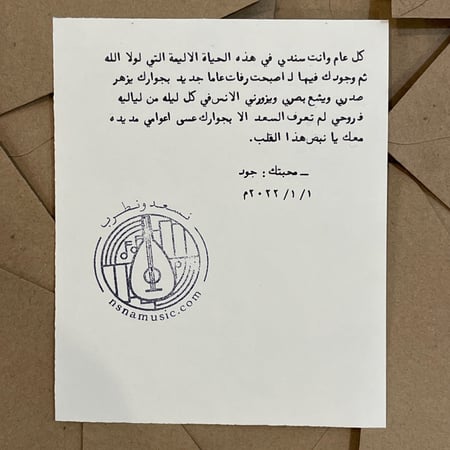 كل عام وانت سندي في هذه الحياة الاليمة التي لولا الله
ثم وجودك فيها لـ اصبحت رفات عاما جديد بجوارك يزهر
صدري ويشع بصري ويزورني الانس في كل ليله من لياليه
فروحي لم تعرف السعد الا بجوارك عسى اعوامي مديده
معك يا نبض هذا القلب.
ـ محبتك: جود
٢٠٢٢/١/١م
نسعد ونطرب
nsnamusic.com